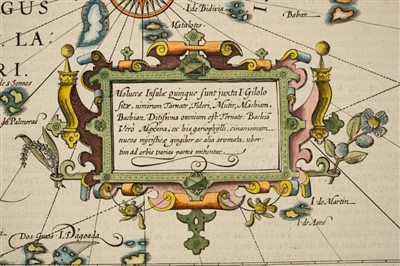 GUS
LA
RI
I de Bidivia
Matalotes
I de
Baban
Molucæ Insulæ quinque sunt juxta I Gilolo
sitæ, nimirum Tarnate, Tidori, Mutir, Machiam,
Bachian. Ditissima omnium est Ternate. Bachia
Verò Maxima, ex his gariophylli, cinamomum
nuces myristicæ gingiber ac alia aromata, uber-
tim ad orbis varias partes mituntur.
Palmeras
I de Martin
I de Aves
Dos Graos I. Dagoada